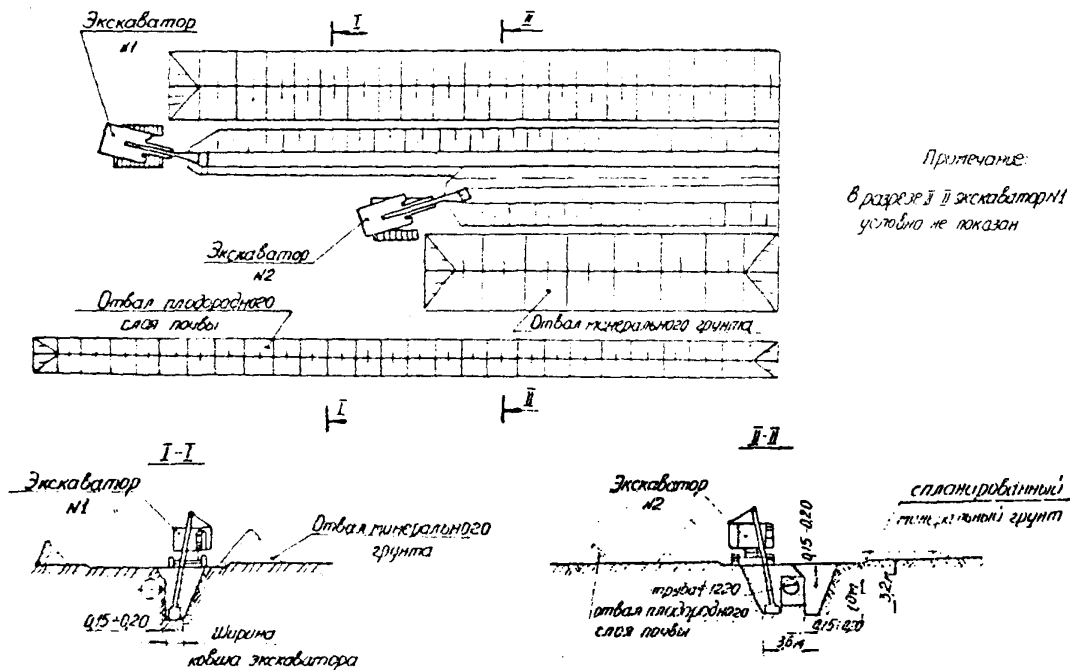 Экскаватор
№1
I
II
Примечание:
В разрезе II II экскаватор №1
условно не показан
Экскаватор
№2
Отвал плодородного
слоя почвы
Отвал минерального грунта
I
II
I-I
II-II
Экскаватор
№1
Отвал минерального
грунта
0,15÷0,20
Ширина
ковша экскаватора
Экскаватор
№2
спланированный
минеральный грунт
0,15-0,20
труба
1220
отвал плодородного
слоя почвы
3,2м
3,6м